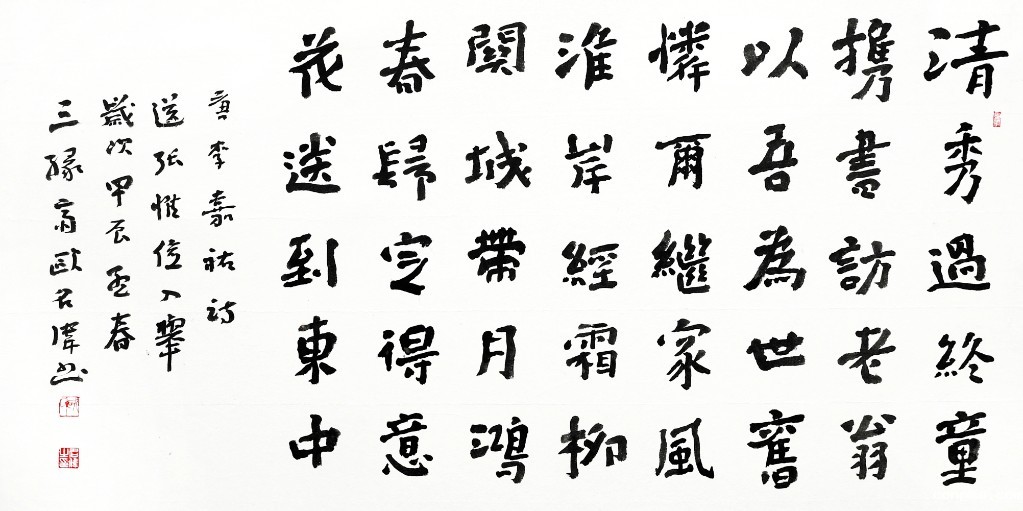 清秀過終童
攜書訪老翁
以吾為世舊
憐爾繼家風
淮岸經霜柳
關城帶月鴻
春歸定得意
花送到東中
唐李嘉祐詩
送張惟俭入舉
歲次甲辰孟春
三緣齋歐君偉書